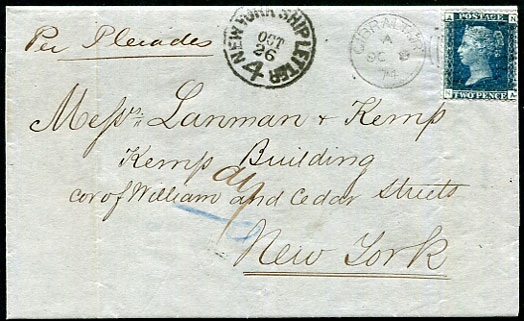 Per Pleiades
NEW YORK SHIP LETTER
OCT
26
4
GIBRALTAR
A
OC 8
74
A N
POSTAGE
TWO PENCE
N A
Messrs Lanman & Kemp
Kemp Building
cor of William and Cedar Streets
New York